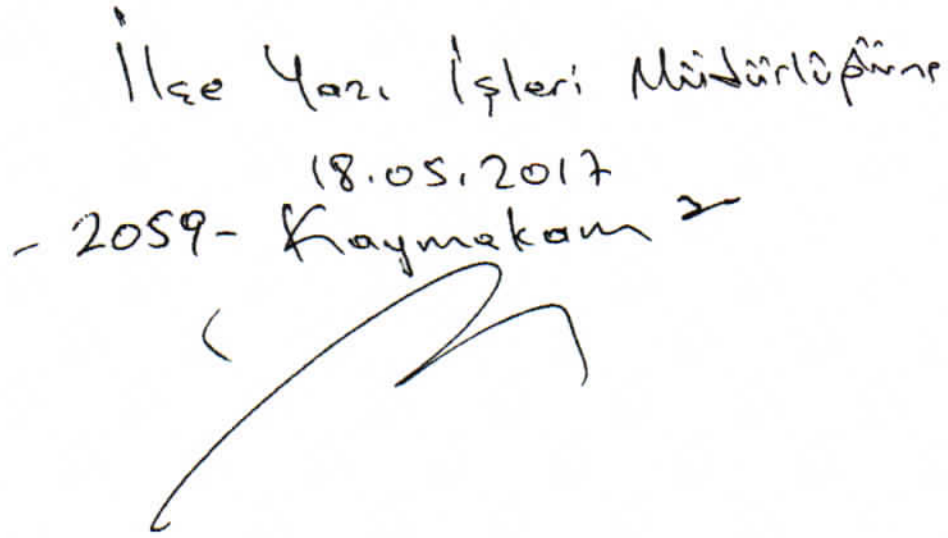 İlçe Yazı İşleri Müdürlüğüne
18.05.2017
- 2059 - Kaymakam